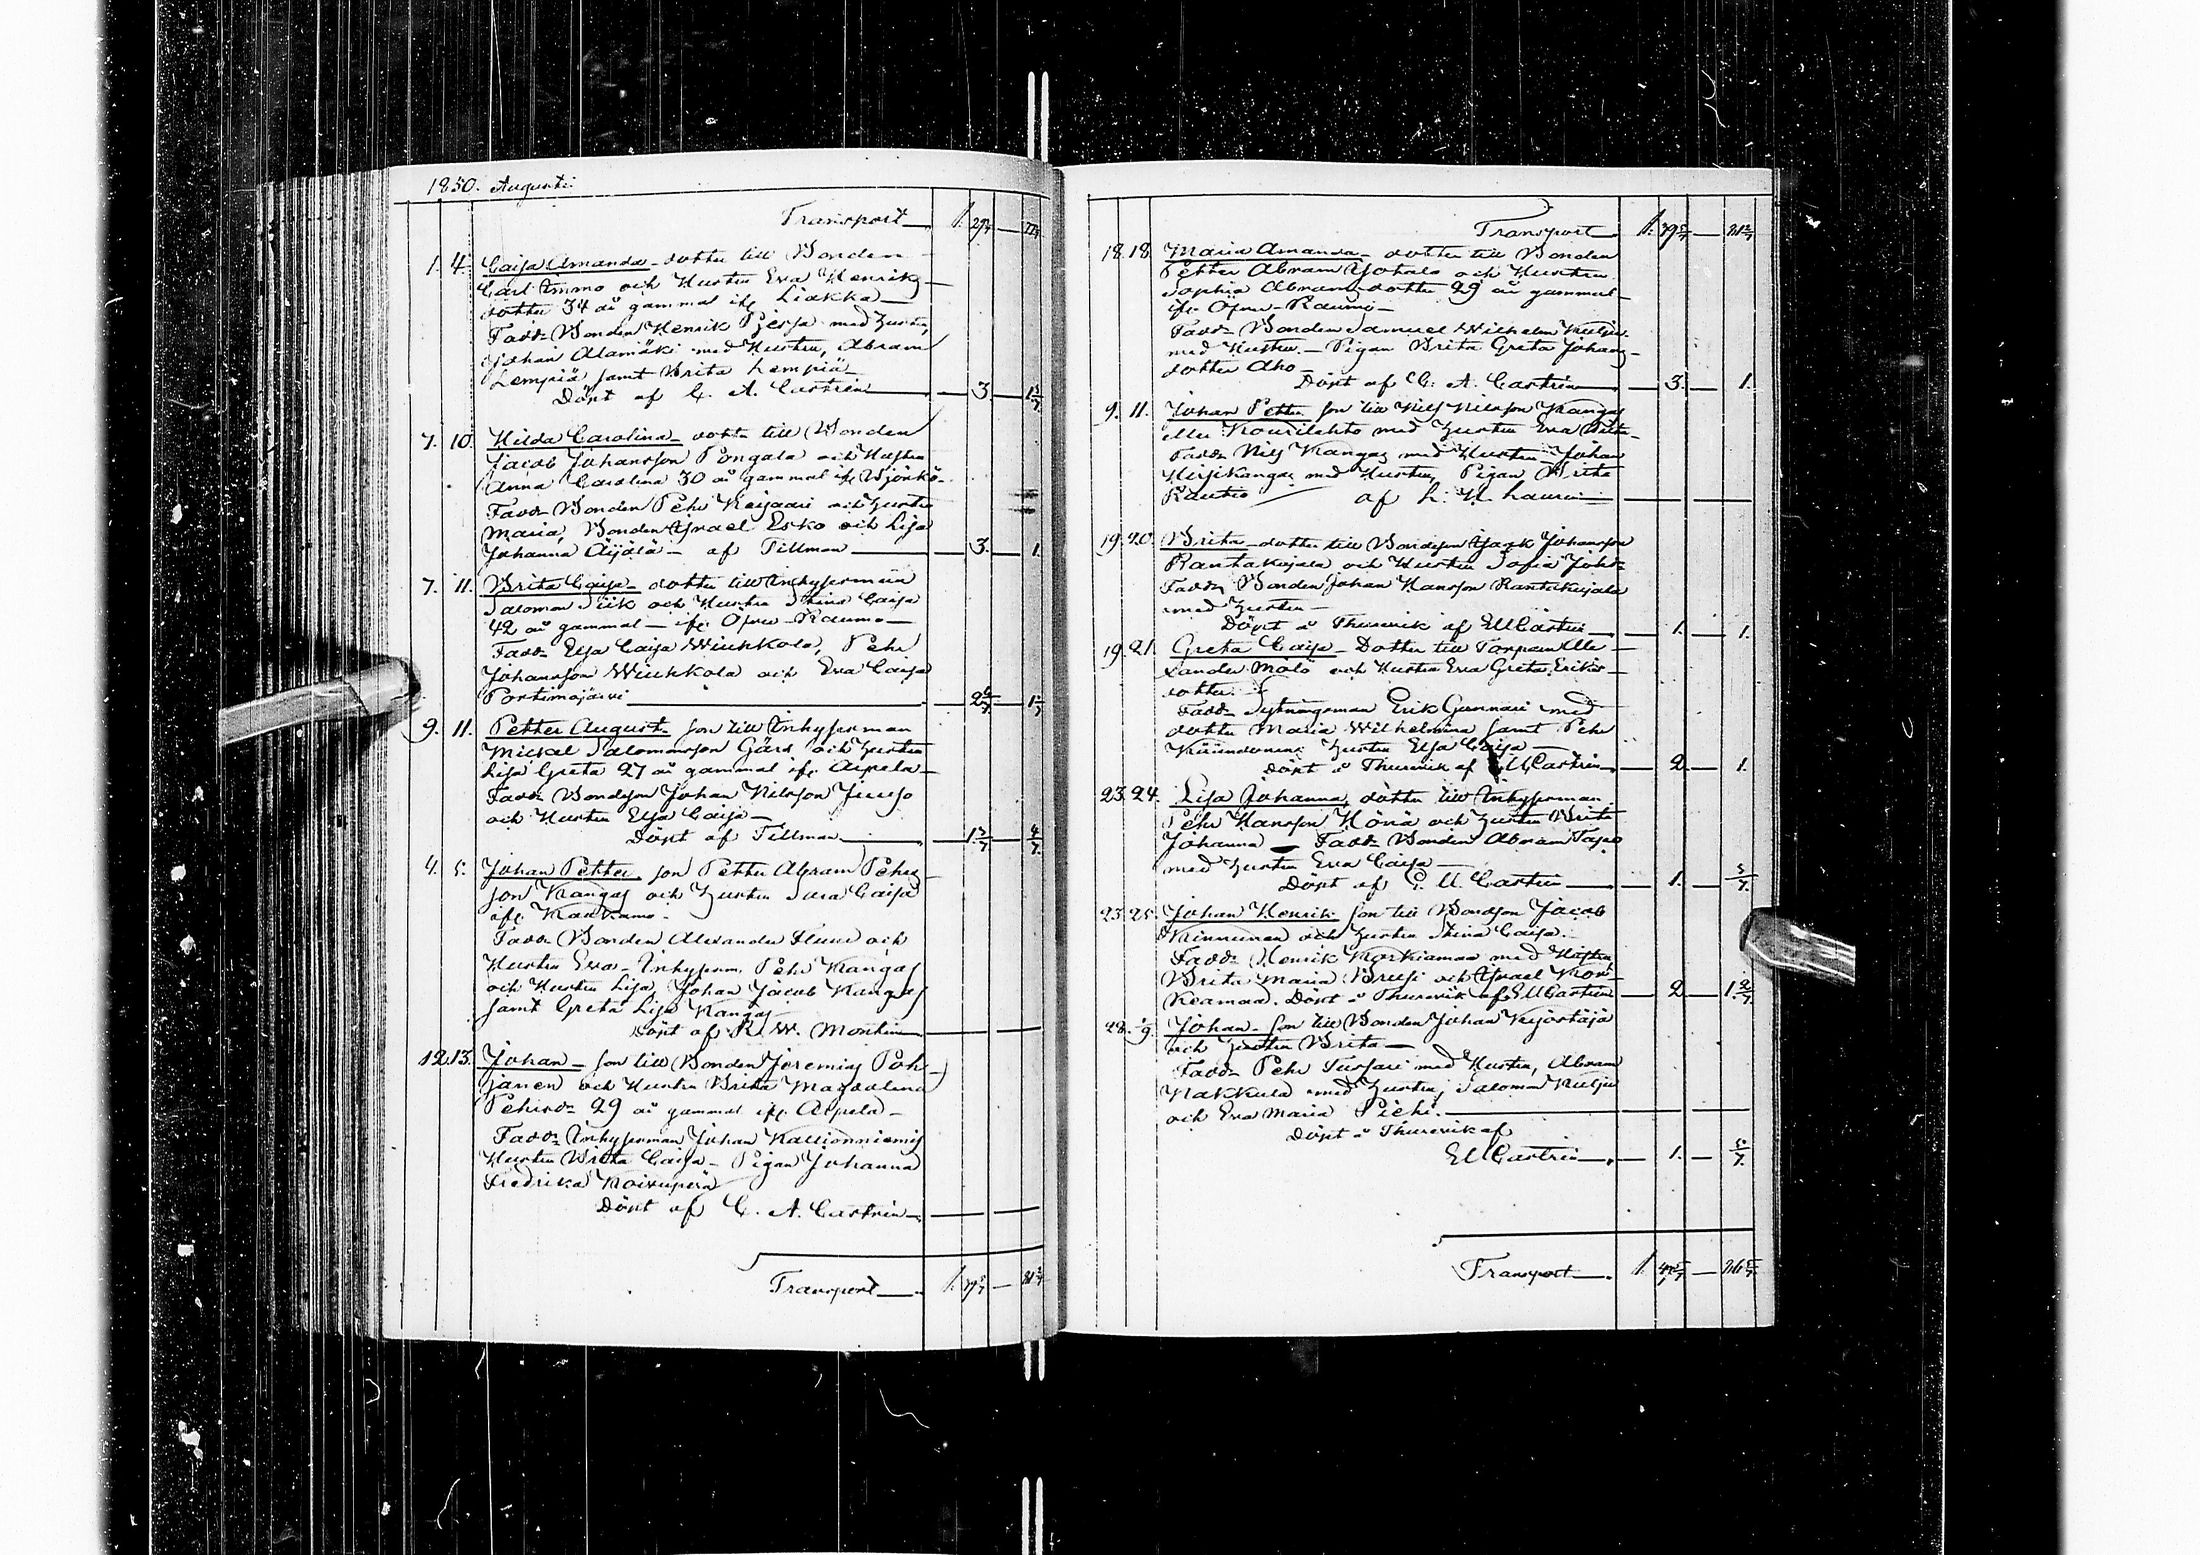 1850. Augusti
Transport
1. 4. Caisa Amanda - dotter till Bonden
Carl Immo och Hustru Eva Henriks
dotter 34 år gammal ifr. Liakka
Fadd: Bonden Henrik med hustru,
Johan Alamäki med Hustru, Abram
Lempiä samt Brita Lempiä
Döpt af C. A. Castrén 3
7. 10. Hilda Carolina - dotter till Bonden
Jacob Johansson Pongala och Hustru
Anna Carolina 30 år gammal ifr Björkö
Fadd: Bonden Pehr Keijaari och hustru
Maria, Bonden Israel Esko och Lisa
Johanna Äijälä - af Tillman 3. 1.
7. 11. Brita Caisa - dotter till Inhysesman
Salomon Siik och Hustru Stina Caisa
42 år gammal - ifr. Öfver-Raumo
Fadd: Elsa Caisa Winkkola, Pehr
Johansson Winkkola och Eva Caisa
Portimojärvi
9. 11. Petter August - son till Inhysesman
Mickel Salomonsson Gärd och hustru
Lisa Greta 27 år gammal ifr. Arpela
Fadd: Bondeson Johan Nilsson Juuso
och Hustru Elsa Caisa
Döpt af Tillman
4. 5. Johan Petter - son Petter Abram Pehrs
son Kangas och hustru Sara Caisa
ifr. Kaakamo.
Fadd: Bonden Alexander och
Hustru Eva - Inhysesm. Pehr Kangas
och Hustru Lisa, Johan Jacob Kangas
samt Greta Lisa Kangas
Döpt af R. W. Montin
12. 13. Johan - son till Bonden Jeremias Poh-
janen och Hustru Brita Magdalena
Pehrsd: 29 år gammal ifr. Arpela
Fadd: Inhysesman Johan Kallionniemis
Hustru Brita Caisa - Pigan Johanna
Fredrika Koivuperä
Döpt af C. A. Castrén
Transport
Transport
18. 18. Maria Amanda - dotter till Bonden
Petter Abram Yotala och Hustru
Sophia Abrams dotter 29 år gammal
ifr Öfver-Raumo
Fadd: Bonden Samuel Wilhelm Kulju
med Hustru. - Pigan Brita Greta Johans-
dotter Aho
Döpt af C. A. Castrén 3. 1.
9. 11. Johan Petter son till Nils Nilsson Kangas
eller Kourilehto med hustru Eva
Fadd: Nils Kangas med Hustru Johan
Hirsikangas med Hustru, Pigan Brita
Rautio af L. H. Laurin
19. 20. Brita - dotter till Bondeson Isack Johansson
Rantakujala och Hustru Sofia Johd:
Fadd: Bonden Johan Hansson Rantakujala
med hustru
Döpt å Thurevik af EU Castrén 1. 1.
19. 21. Greta Caisa - Dotter till Torparn Ale-
xander Mölö och Hustru Eva Greta Eriks-
dotter.
Fadd: Sytningsman Erik Gunnari med
dotter Maria Wilhelmina samt Pehr
hustru Elsa Caisa
Döpt å Thurevik af EU Castrén 2. 1.
23. 24. Lisa Johanna, dotter till Inhysesman
Pehr Hansson Hönä och hustru Brita
Johanna - Fadd: Bonden Abram
med hustru Eva Caisa
Döpt af E. U. Castrén 1. 5/7.
23. 25. Johan Henrik son till Bondson Jacob
Kinnunen och hustru Stina Caisa.
Fadd: Henrik Korkiamaa med Hustru,
Brita Maria och Israel Kor-
kiamaa. Döpt å Thurevik af EU Castrén 2 1. 2/7.
28. Johan - son till Bonden Johan
och hustru Brita
Fadd: Pehr med Hustru, Abram
Nakkula med hustru, Salomon Kulju
och Eva Maria Pichi.
Döpt å Thurevik af
EU Castrén 1. 5/7.
Transport